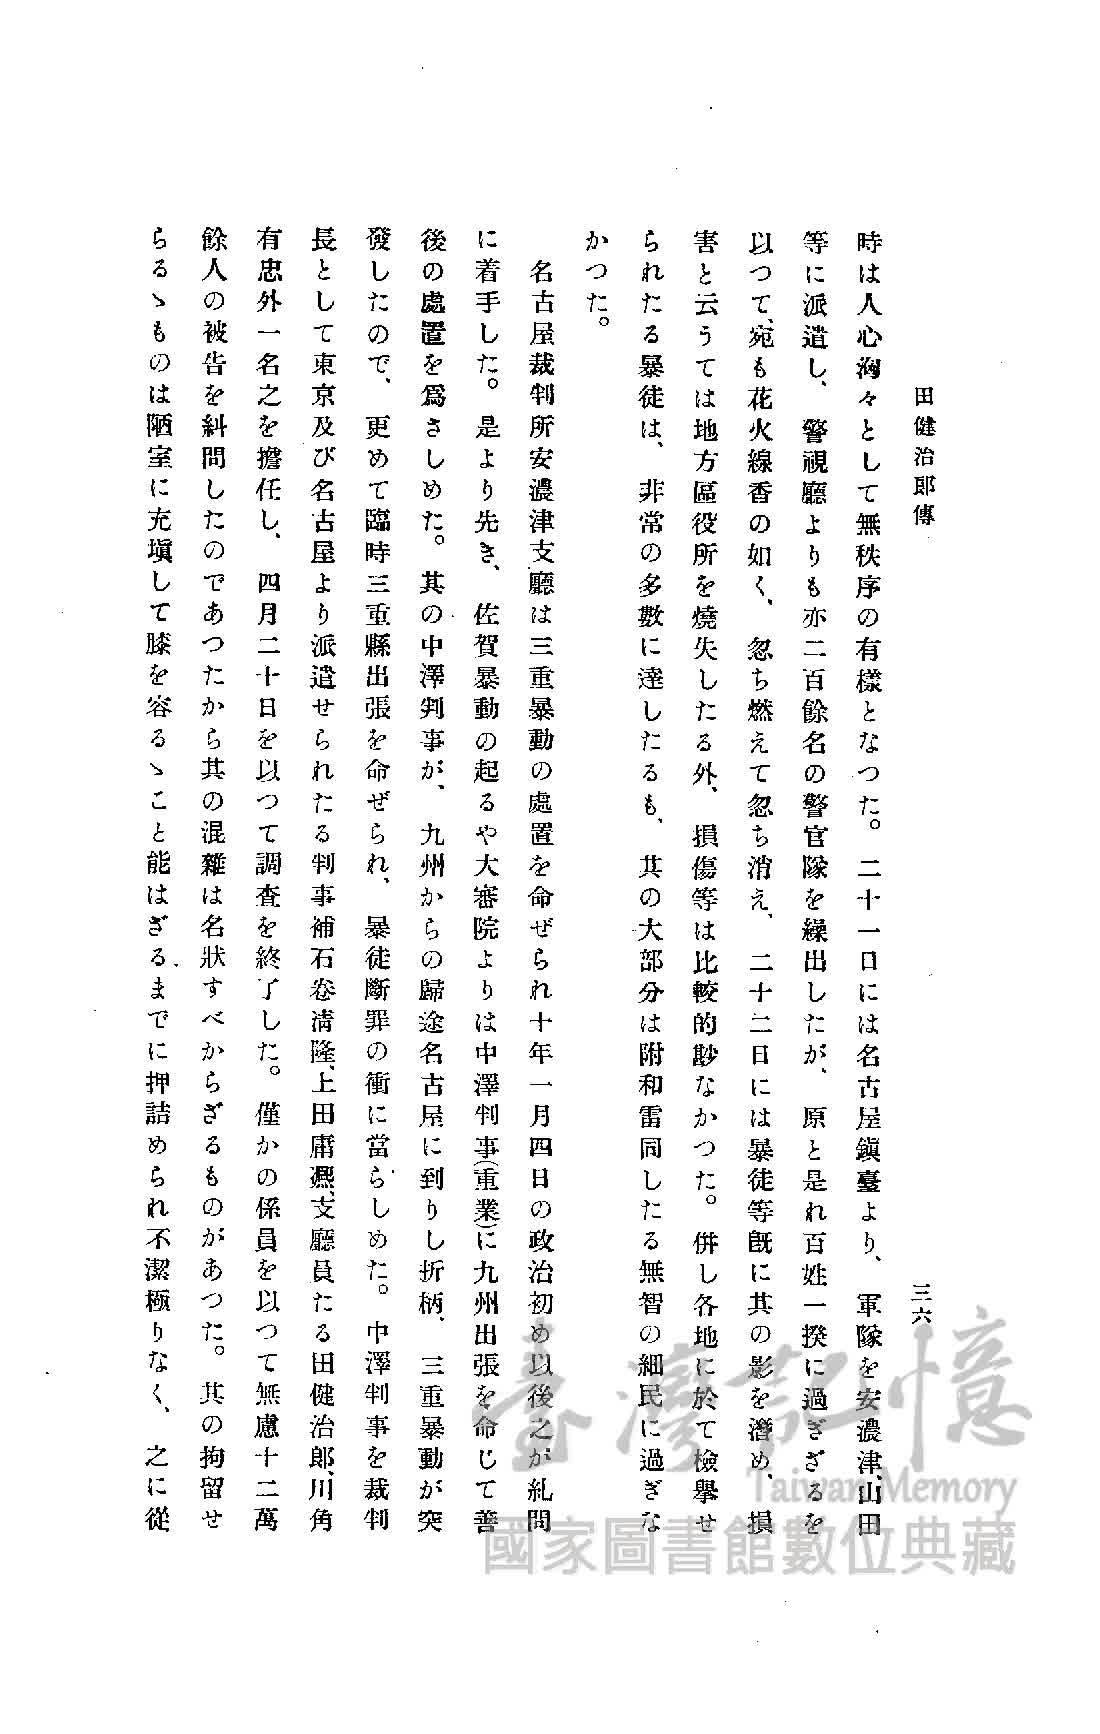 田健治郎傳
三六
時は人心洶々として無秩序の有樣となつた。二十一日には名古屋鎭臺より、軍隊を安濃津、山田
等に派遣し、警視廳よりも亦二百餘名の警官隊を繰出したが、原と是れ百姓一揆に過ぎざるを
以つて、宛も花火線香の如く、忽ち燃えて忽ち消え、二十二日には暴徒等既に其の影を潛め、損
害と云うては地方區役所を燒失したる外、損傷等は比較的尠なかつた。併し各地に於て檢擧せ
られたる暴徒は、非常の多數に達したるも、其の大部分は附和雷同したる無智の細民に過ぎな
かつた。
名古屋裁判所安濃津支廳は三重暴動の處置を命ぜられ十年一月四日の政治初め以後之が糺問
に着手した。是より先き、佐賀暴動の起るや大審院よりは中澤判事(重業)に九州出張を命じて善
後の處置を爲さしめた。其の中澤判事が、九州からの歸途名古屋に到りし折柄、三重暴動が突
發したので、更めて臨時三重縣出張を命ぜられ、暴徒斷罪の衝に當らしめた。中澤判事を裁判
長として東京及び名古屋より派遣せられたる判事補石卷淸隆、上田庸、支廳員たる田健治郎、川角
有忠外一名之を擔任し、四月二十日を以つて調査を終了した。僅かの係員を以つて無慮十二萬
餘人の被告を糾問したのであつたから其の混雜は名狀すべからざるものがあつた。其の拘留せ
らるゝものは陋室に充塡して膝を容るゝこと能はざるまでに押詰められ不潔極りなく、之に從
臺灣記憶
Taiwan Memory
國家圖書館數位典藏